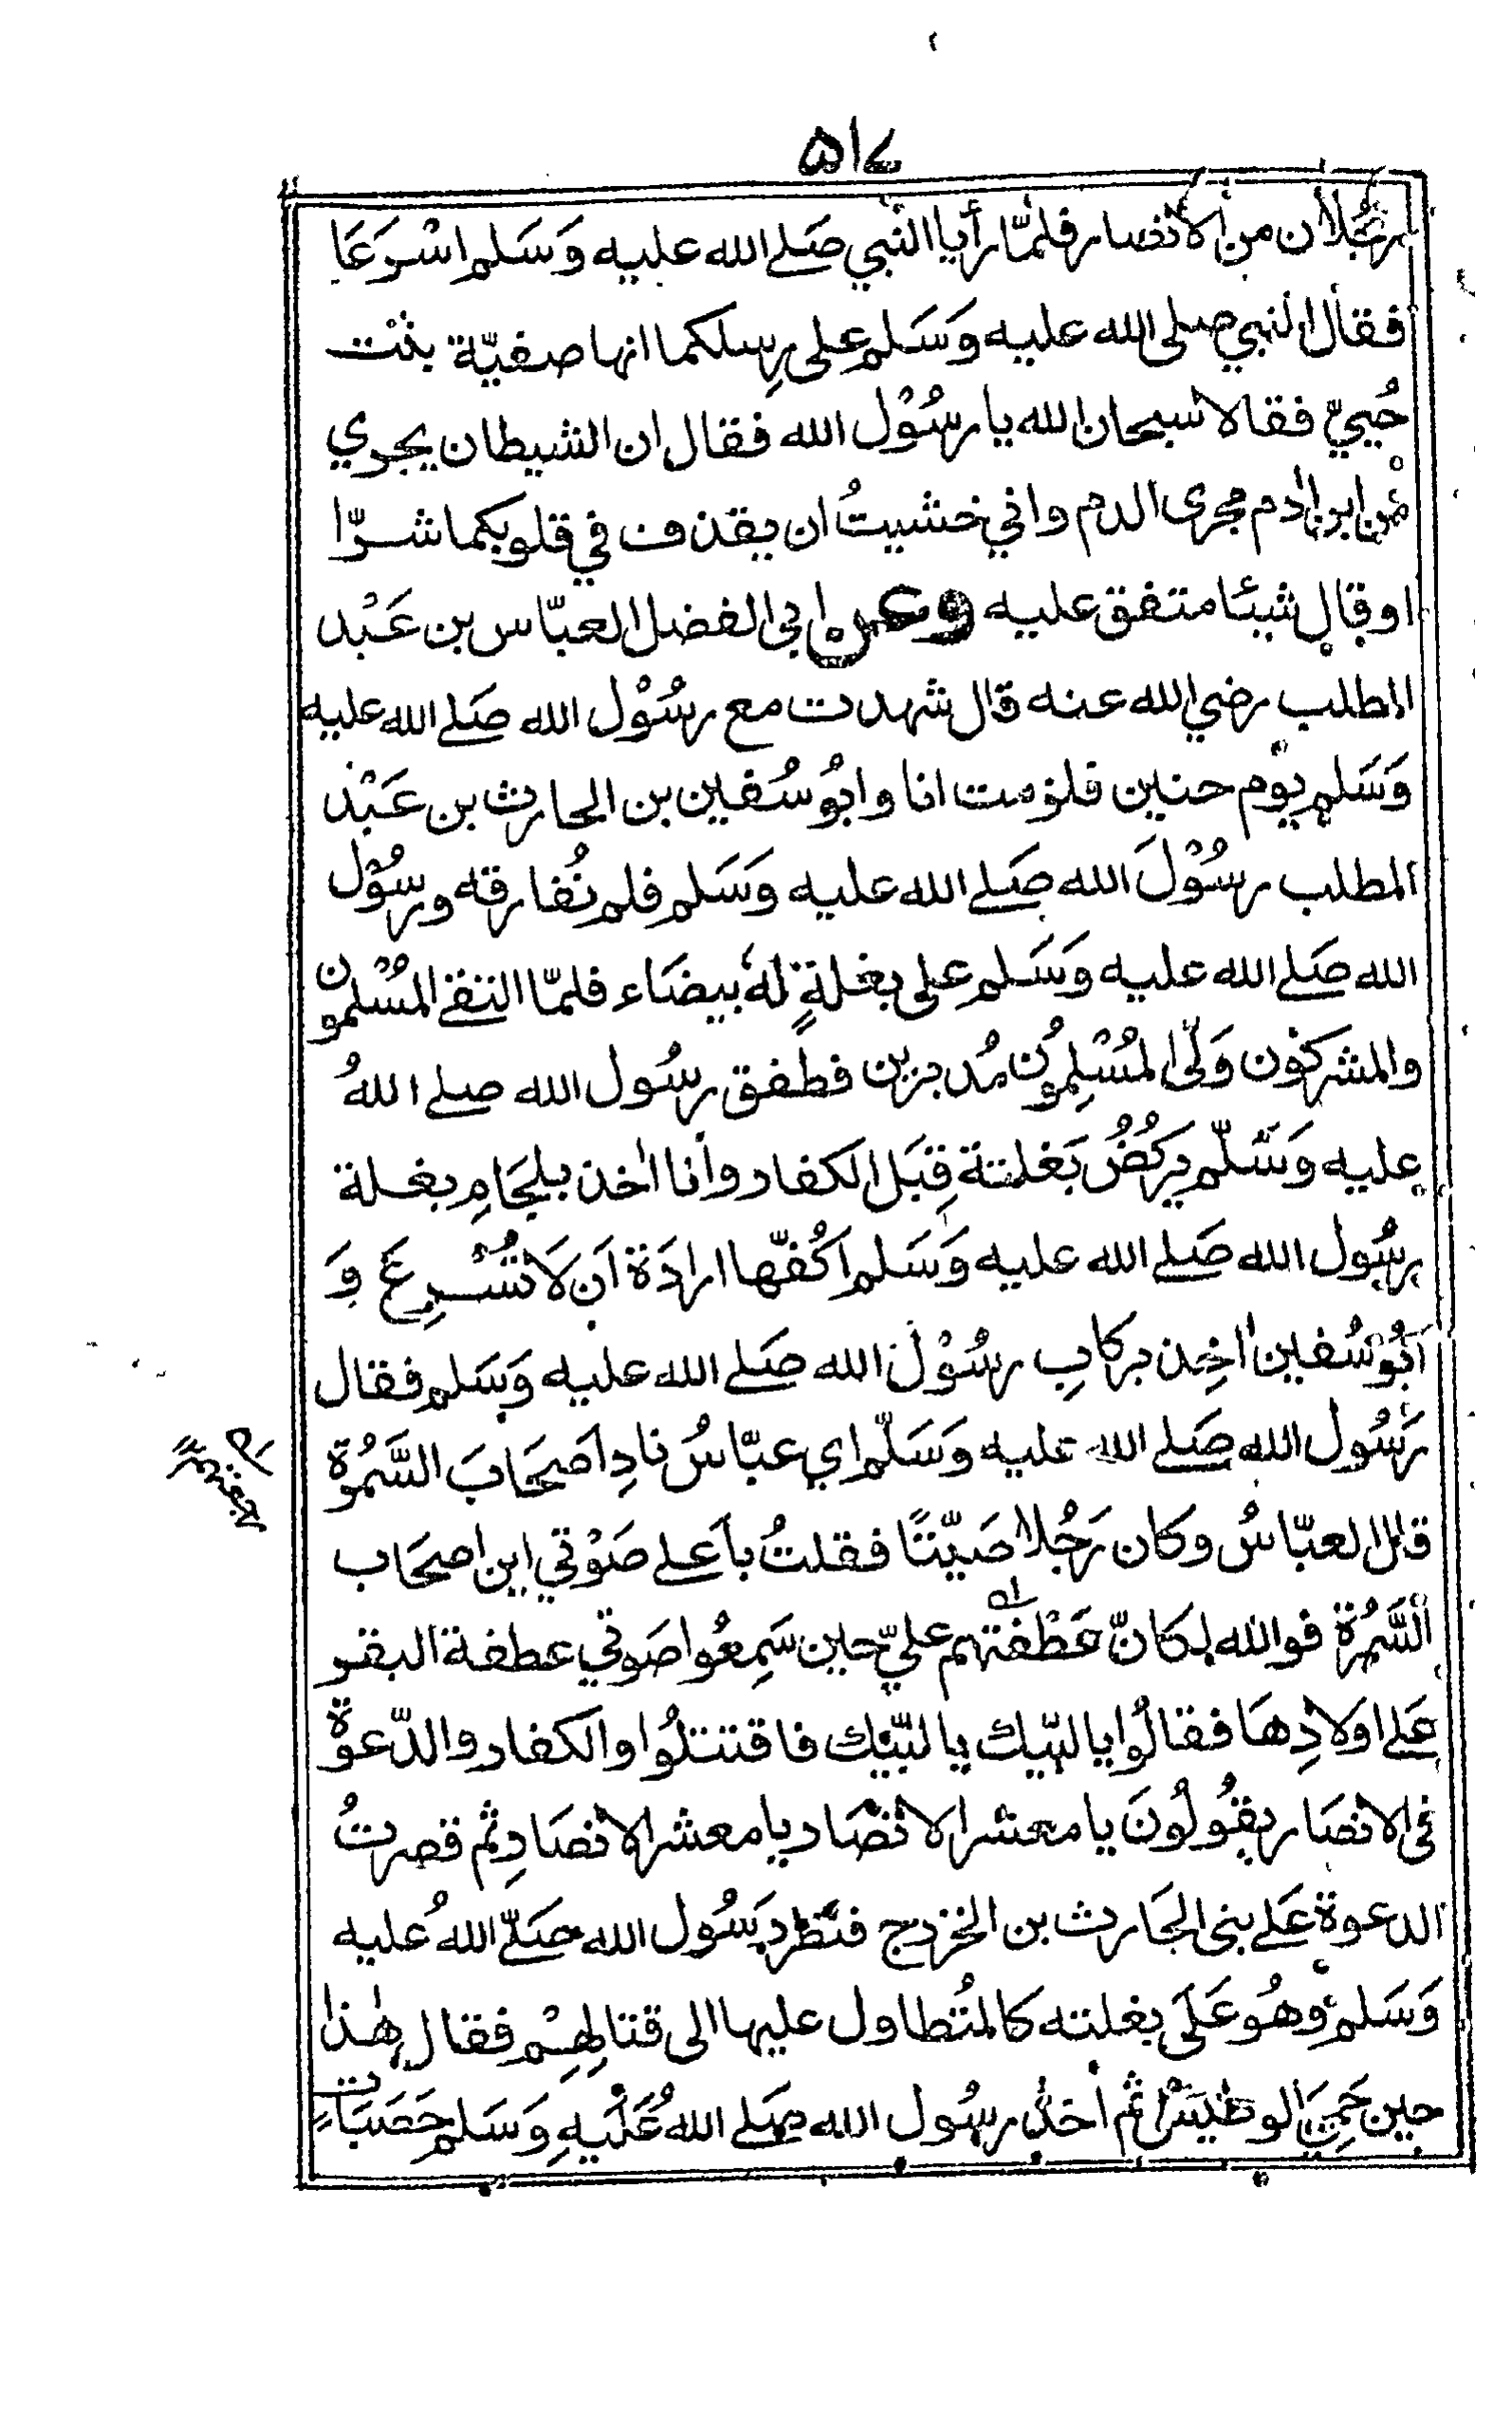 ۵۱۷
رجُلان من الانصار فلمّا رأيا النبي صَلے الله عليه وَسَلم اسْرَعَا
فقال النبي صلى الله عليه وَسَلم على رِسلكما انها صفيّة بنْت
حُييّ فقالا سبحان الله يا رسُوْل الله فقال ان الشيطان يجري
من ابن اٰدم مجرى الدم واني خشيتُ ان يقذف في قلوبكما شرّا
او قال شيئا متفق عليه وعن ابي الفضل العبّاس بن عَبْد
المطلب رضي الله عنه قال شهدت مع رسُوْل الله صَلے الله عليه
وَسَلم يوْم حنين فلزمت انا وابُو سُفين بن الحارث بن عَبْد
المطلب رسُوْلَ الله صَلے الله عليه وَسَلم فلم نُفارقه ورسُوْل
الله صَلے الله عليه وَسَلم على بغلةٍ لهٗ بيضَاء فلمّا التقے المُسْلمون
والمشركوْن وَلّى المُسْلِمُون مُدبرين فطفق رسُول الله صلے اللهُ
عليه وَسَلّم يركُضُ بَغلتهٗ قِبَل الكفار وأنا اٰخذ بلجَامِ بغلة
رسُول الله صَلے الله عليه وَسَلم اَكُفّها ارادَة اَن لَا تُسْرِعَ وَ
اَبُوْ سُفين اٰخِذ بركابِ رسُوْل الله صَلے الله عليه وَسَلم فقال
رَسُول الله صَلے الله عليه وَسَلّم اي عبّاسُ نادِ اَصحَابَ السَّمُرَة
قال العبّاسُ وكان رَجُلا صَيّتًا فقلتُ باَعلے صَوْتي اين اصحَاب
السَّمُرَة فوالله لكانّ عَطْفتهم عليّ حين سَمِعُوا صَوتي عطفة البقر
عَلے اولادِهَا فقالُوا يا لبّيك يا لبّيْك فاقتتلُوا والكفار والدّعوة
فى الانصَار يقُولُونَ يا معشر الانْصَار يا معشر الانصَارِ ثم قصرتُ
الدعوة عَلے بنى الحَارث بن الخزرج فنظر رَسُول الله صَلّے اللهُ عليه
وَسَلم وهُو عَلَى بغلته كالمُتطاول عليها الى قتالهِمْ فقال هٰذا
حِين حَمِيَ الوطيسُ ثم أخذ رسُول الله صَلے اللهُ عَلَيْهِ وَسَلم حَصَبَاتٍ